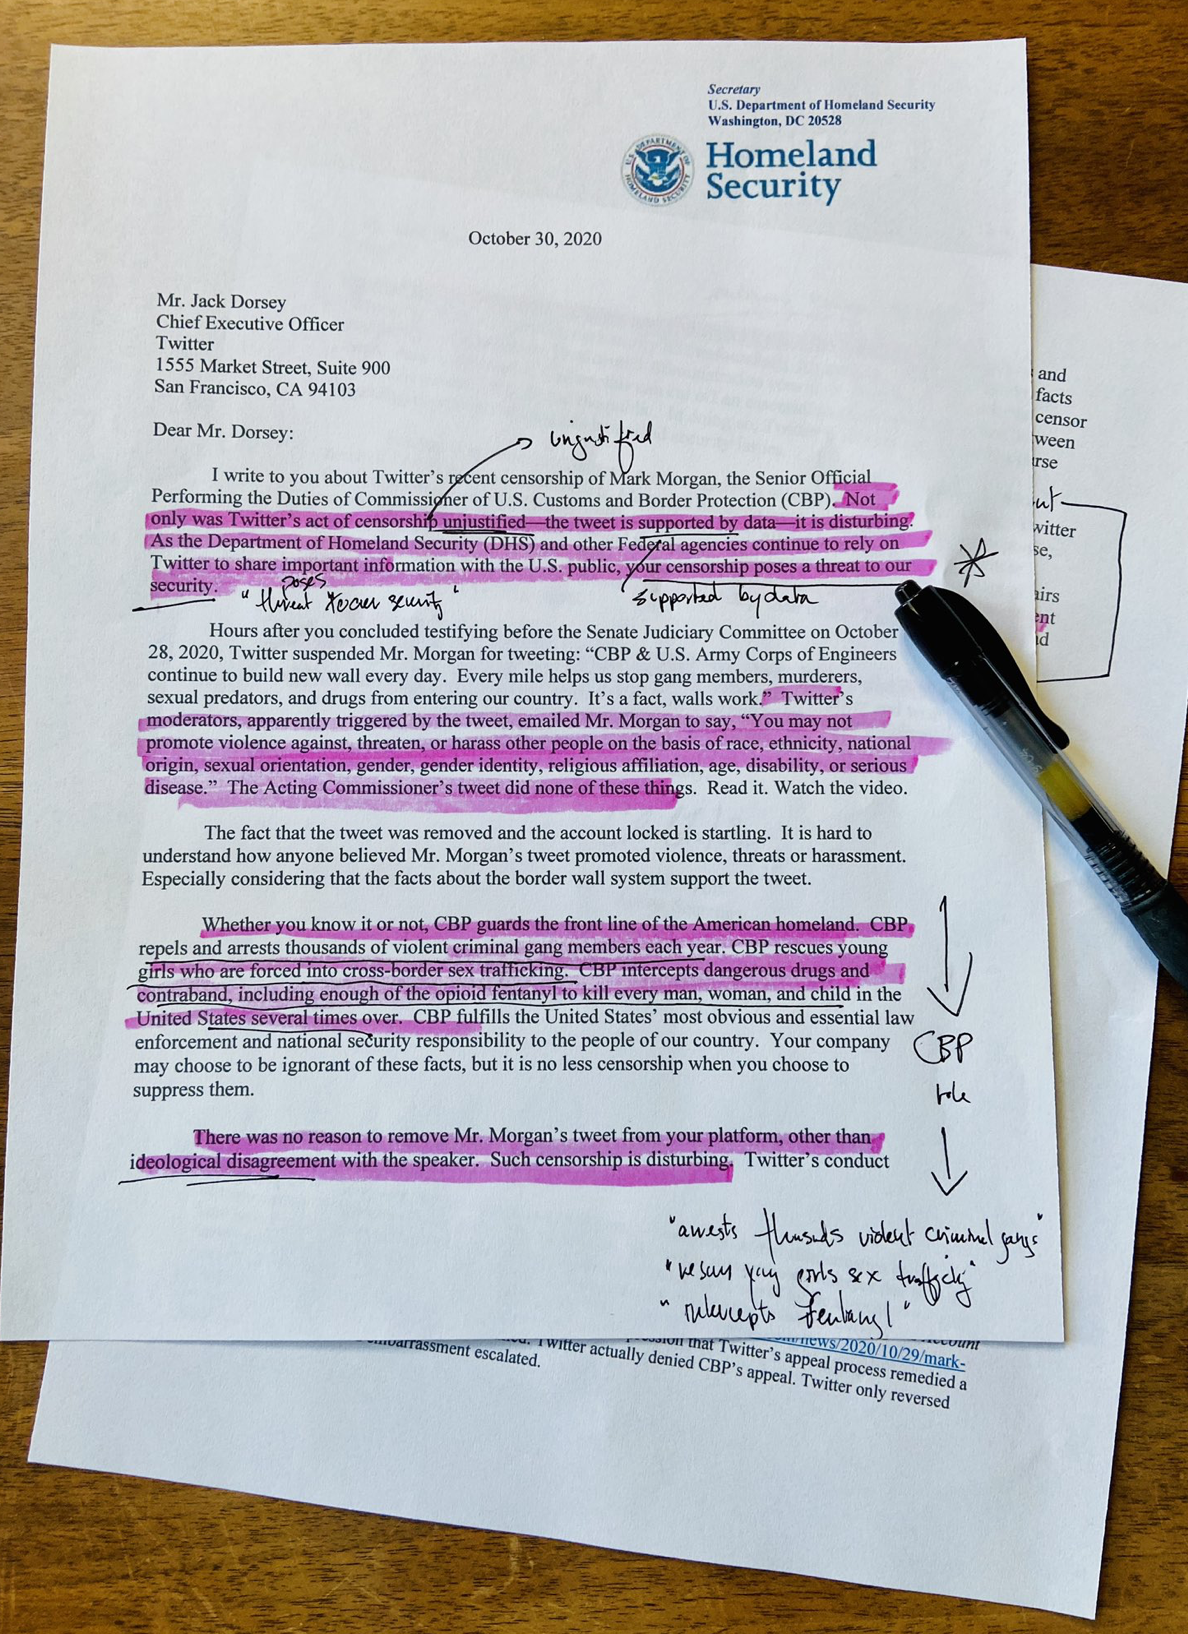 Secretary
U.S. Department of Homeland Security
Washington, DC 20528
U.S. DEPARTMENT OF HOMELAND SECURITY
Homeland
Security
October 30, 2020
Mr. Jack Dorsey
Chief Executive Officer
Twitter
1555 Market Street, Suite 900
San Francisco, CA 94103
Dear Mr. Dorsey:
unjustified
I write to you about Twitter's recent censorship of Mark Morgan, the Senior Official
Performing the Duties of Commissioner of U.S. Customs and Border Protection (CBP). Not
only was Twitter's act of censorship unjustified—the tweet is supported by data—it is disturbing.
As the Department of Homeland Security (DHS) and other Federal agencies continue to rely on
Twitter to share important information with the U.S. public, your censorship poses a threat to our
security.
poses
"threat to our security"
supported by data
Hours after you concluded testifying before the Senate Judiciary Committee on October
28, 2020, Twitter suspended Mr. Morgan for tweeting: “CBP & U.S. Army Corps of Engineers
continue to build new wall every day. Every mile helps us stop gang members, murderers,
sexual predators, and drugs from entering our country. It's a fact, walls work.” Twitter's
moderators, apparently triggered by the tweet, emailed Mr. Morgan to say, “You may not
promote violence against, threaten, or harass other people on the basis of race, ethnicity, national
origin, sexual orientation, gender, gender identity, religious affiliation, age, disability, or serious
disease.” The Acting Commissioner's tweet did none of these things. Read it. Watch the video.
The fact that the tweet was removed and the account locked is startling. It is hard to
understand how anyone believed Mr. Morgan's tweet promoted violence, threats or harassment.
Especially considering that the facts about the border wall system support the tweet.
Whether you know it or not, CBP guards the front line of the American homeland. CBP
repels and arrests thousands of violent criminal gang members each year. CBP rescues young
girls who are forced into cross-border sex trafficking. CBP intercepts dangerous drugs and
contraband, including enough of the opioid fentanyl to kill every man, woman, and child in the
United States several times over. CBP fulfills the United States' most obvious and essential law
enforcement and national security responsibility to the people of our country. Your company
may choose to be ignorant of these facts, but it is no less censorship when you choose to
suppress them.
CBP
role
There was no reason to remove Mr. Morgan's tweet from your platform, other than
ideological disagreement with the speaker. Such censorship is disturbing. Twitter's conduct
"arrests thousands violent criminal gangs"
"rescues young girls sex trafficking"
"intercepts fentanyl"
and
facts
censor
ween
rse
witter
se,
airs
ent
account
/news/2020/10/29/mark-
that Twitter's appeal process remedied a
Twitter actually denied CBP's appeal. Twitter only reversed
embarrassment escalated.